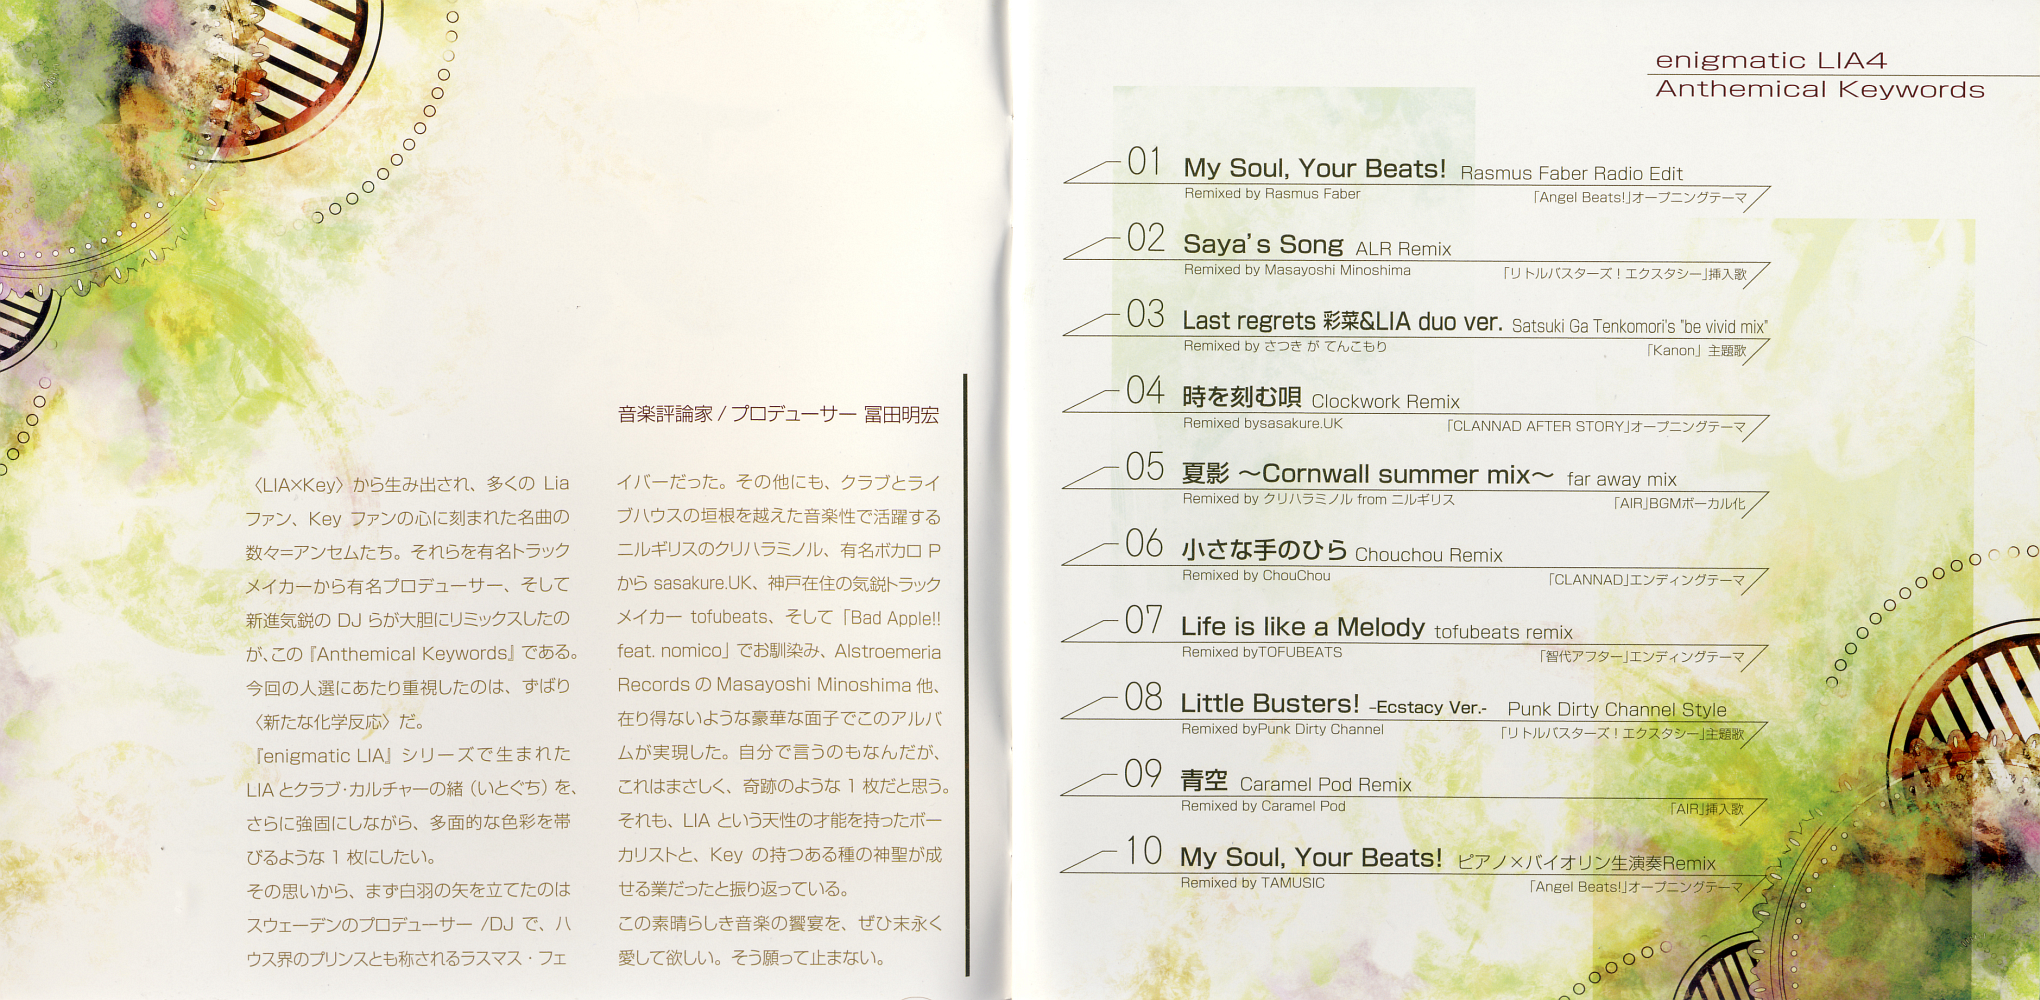 音楽評論家 / プロデューサー 冨田明宏
〈LIA×Key〉から生み出され、多くの Lia
ファン、Key ファンの心に刻まれた名曲の
数々=アンセムたち。それらを有名トラック
メイカーから有名プロデューサー、そして
新進気鋭の DJ らが大胆にリミックスしたの
が、この『Anthemical Keywords』である。
今回の人選にあたり重視したのは、ずばり
〈新たな化学反応〉だ。
『enigmatic LIA』シリーズで生まれた
LIA とクラブ・カルチャーの緒（いとぐち）を、
さらに強固にしながら、多面的な色彩を帯
びるような 1 枚にしたい。
その思いから、まず白羽の矢を立てたのは
スウェーデンのプロデューサー /DJ で、ハ
ウス界のプリンスとも称されるラスマス・フェ
イバーだった。その他にも、クラブとライ
ブハウスの垣根を越えた音楽性で活躍する
ニルギリスのクリハラミノル、有名ボカロ P
から sasakure.UK、神戸在住の気鋭トラック
メイカー tofubeats、そして「Bad Apple!!
feat. nomico」でお馴染み、Alstroemeria
Records の Masayoshi Minoshima 他、
在り得ないような豪華な面子でこのアルバ
ムが実現した。自分で言うのもなんだが、
これはまさしく、奇跡のような 1 枚だと思う。
それも、LIA という天性の才能を持ったボー
カリストと、Key の持つある種の神聖が成
せる業だったと振り返っている。
この素晴らしき音楽の饗宴を、ぜひ末永く
愛して欲しい。そう願って止まない。
enigmatic LIA4
Anthemical Keywords
01 My Soul, Your Beats! Rasmus Faber Radio Edit
Remixed by Rasmus Faber 「Angel Beats!」オープニングテーマ
02 Saya's Song ALR Remix
Remixed by Masayoshi Minoshima 「リトルバスターズ！エクスタシー」挿入歌
03 Last regrets 彩菜&LIA duo ver. Satsuki Ga Tenkomori's "be vivid mix"
Remixed by さつき が てんこもり 「Kanon」主題歌
04 時を刻む唄 Clockwork Remix
Remixed bysasakure.UK 「CLANNAD AFTER STORY」オープニングテーマ
05 夏影 ～Cornwall summer mix～ far away mix
Remixed by クリハラミノル from ニルギリス 「AIR」BGMボーカル化
06 小さな手のひら Chouchou Remix
Remixed by ChouChou 「CLANNAD」エンディングテーマ
07 Life is like a Melody tofubeats remix
Remixed byTOFUBEATS 「智代アフター」エンディングテーマ
08 Little Busters! -Ecstacy Ver.- Punk Dirty Channel Style
Remixed byPunk Dirty Channel 「リトルバスターズ！エクスタシー」主題歌
09 青空 Caramel Pod Remix
Remixed by Caramel Pod 「AIR」挿入歌
10 My Soul, Your Beats! ピアノ×バイオリン生演奏Remix
Remixed by TAMUSIC 「Angel Beats!」オープニングテーマ